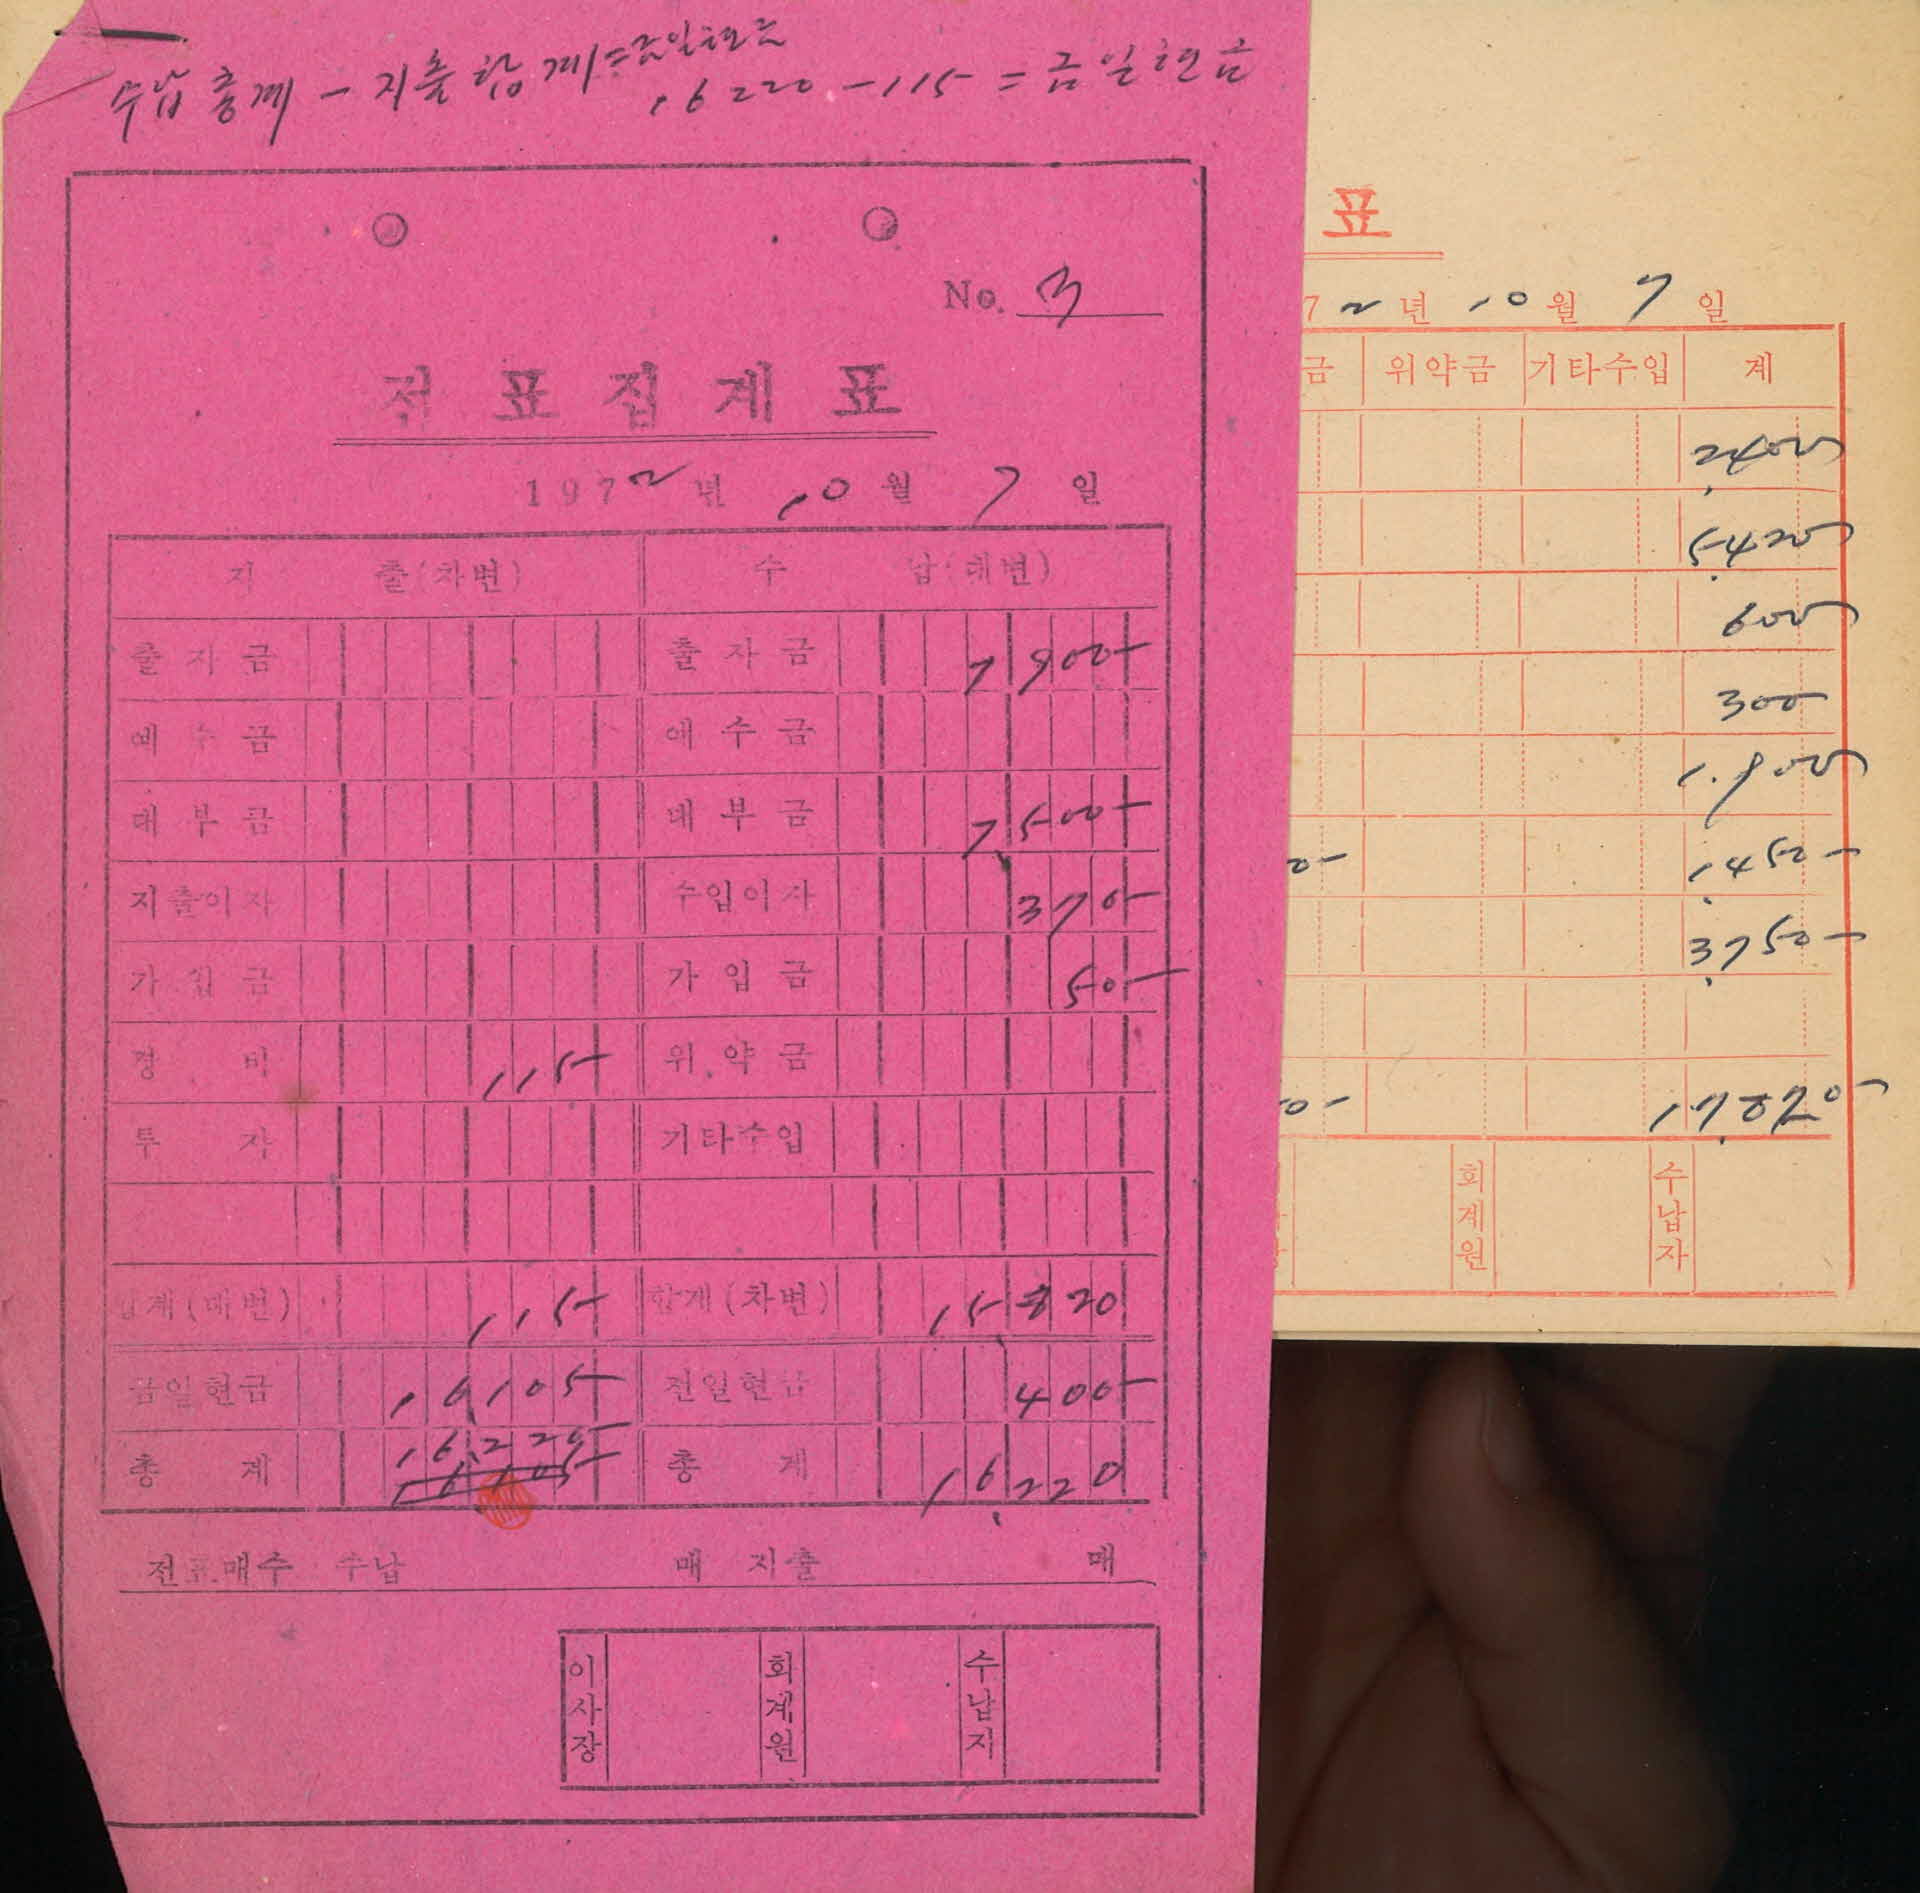 수납 총계 - 지출 합계 = 금일현금
16220 - 115 = 금일현금
No. 3
전표집계표
1972년 10월 7일
지출(차변) 수납(대변)
출자금 출자금 7900-
예수금 예수금
대부금 대부금 7,500-
지출이자 수입이자 370-
가입금 가입금 50-
경비 115- 위약금
투자 기타수입
합계(대변) 115- 합계(차변) 15,820
금일현금 16,105- 전일현금 400-
총계 16,220- 총계 16,220
전표매수 수납 매 지출 매
이사장 회계원 수납자
표
72년 10월 7일
금 위약금 기타수입 계
2,400-
5,420-
600-
300-
1,900-
0- 1,450-
3,750-
0-
회계원 수납자